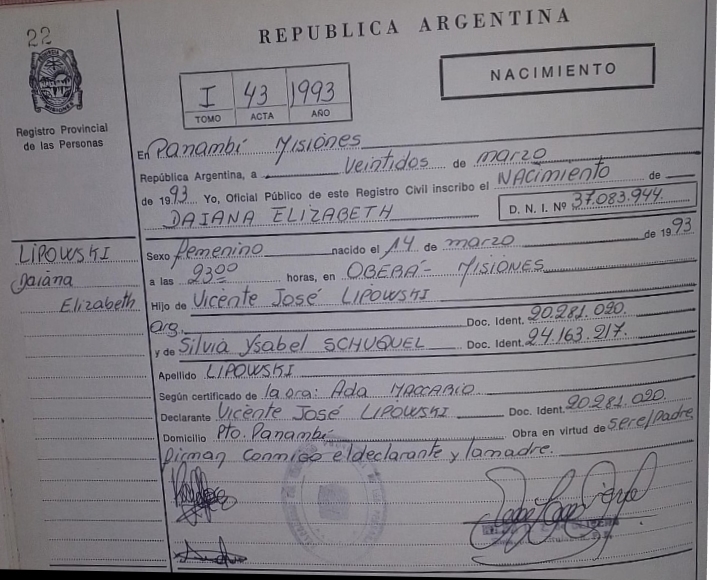 22
REPUBLICA ARGENTINA
Registro Provincial
de las Personas
I 43 1993
TOMO ACTA AÑO
NACIMIENTO
En Panambí Misiones
República Argentina, a veintidos de marzo
de 1993 Yo, Oficial Público de este Registro Civil inscribo el NAcimiento de
DAIANA ELIZABETH D. N. I. Nº 37.083.944.
LIPOWSKI
Daiana
Elizabeth
Sexo femenino nacido el 14 de marzo de 1993
a las 23:00 horas, en OBERÁ - MISIONES
Hijo de Vicente José LIPOWSKI
arg. Doc. Ident. 20.281.020.
y de Silvia Ysabel SCHUQUEL Doc. Ident. 24.163.217.
Apellido LIPOWSKI
Según certificado de la Dra: Ada MACCARIO
Declarante Vicente José LIPOWSKI Doc. Ident. 20.281.020
Domicilio Pto. Panambí Obra en virtud de ser el padre
Firman conmigo el declarante y la madre.